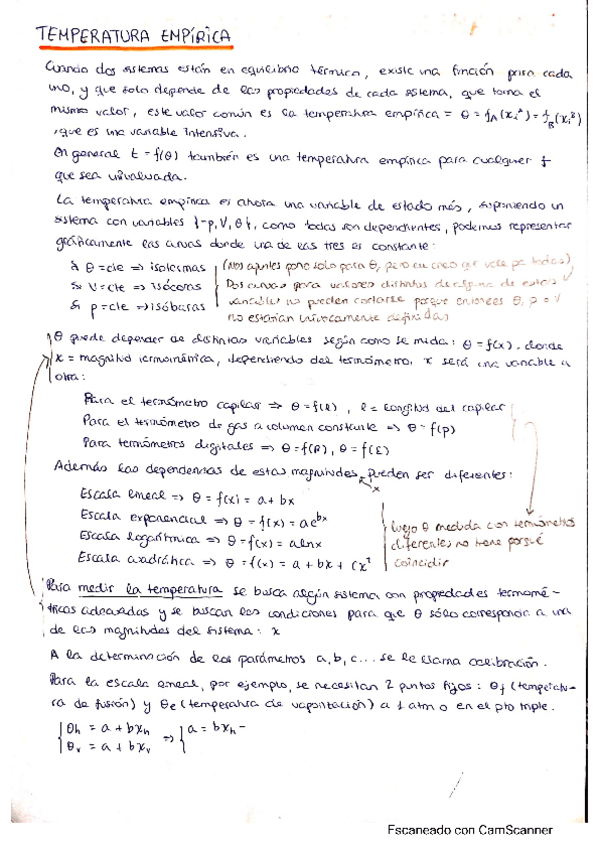 TEMPERATURA EMPÍRICA
Cuando dos sistemas están en equilibrio térmico, existe una función para cada
uno, y que solo depende de las propiedades de cada sistema, que toma el
mismo valor, este valor común es la temperatura empírica = θ = f_A(x_i^A) = f_B(x_i^B)
, que es una variable intensiva.
En general t = f(θ) también es una temperatura empírica para cualquier f
que sea univaluada.
La temperatura empírica es ahora una variable de estado más, suponiendo un
sistema con variables {-p, V, θ}, como todas son dependientes, podemos representar
gráficamente las curvas donde una de las tres es constante:
Si θ = cte => isotermas
Si V = cte => isócoras
Si p = cte => isóbaras
(Mis apuntes pone solo para θ, pero yo creo que vale pa todas)
Dos curvas para valores distintos de alguna de estas
variables no pueden cortarse porque entonces θ, p o V
no estarían unívocamente definidas
θ puede depender de distintas variables según como se mida: θ = f(x), donde
x = magnitud termométrica, dependiendo del termómetro, x será una variable u
otra:
Para el termómetro capilar => θ = f(l) , l = longitud del capilar
Para el termómetro de gas a volumen constante => θ = f(p)
Para termómetros digitales => θ = f(R), θ = f(ε)
Además las dependencias de estas magnitudes pueden ser diferentes:
x
Escala lineal => θ = f(x) = a + bx
Escala exponencial => θ = f(x) = ae^bx
Escala logarítmica => θ = f(x) = a lnx
Escala cuadrática => θ = f(x) = a + bx + cx²
luego θ medida con termómetros
diferentes no tiene porqué
coincidir
Para medir la temperatura se busca algún sistema con propiedades termomé-
tricas adecuadas y se buscan las condiciones para que θ sólo corresponda a una
de las magnitudes del sistema: x
A la determinación de los parámetros a, b, c... se le llama calibración.
Para la escala lineal, por ejemplo, se necesitan 2 puntos fijos: θf (temperatu-
ra de fusión) y θe (temperatura de vaporización) a 1 atm o en el pto triple.
{ θh = a + bxh => { a = bxh -
θv = a + bxv
Escaneado con CamScanner